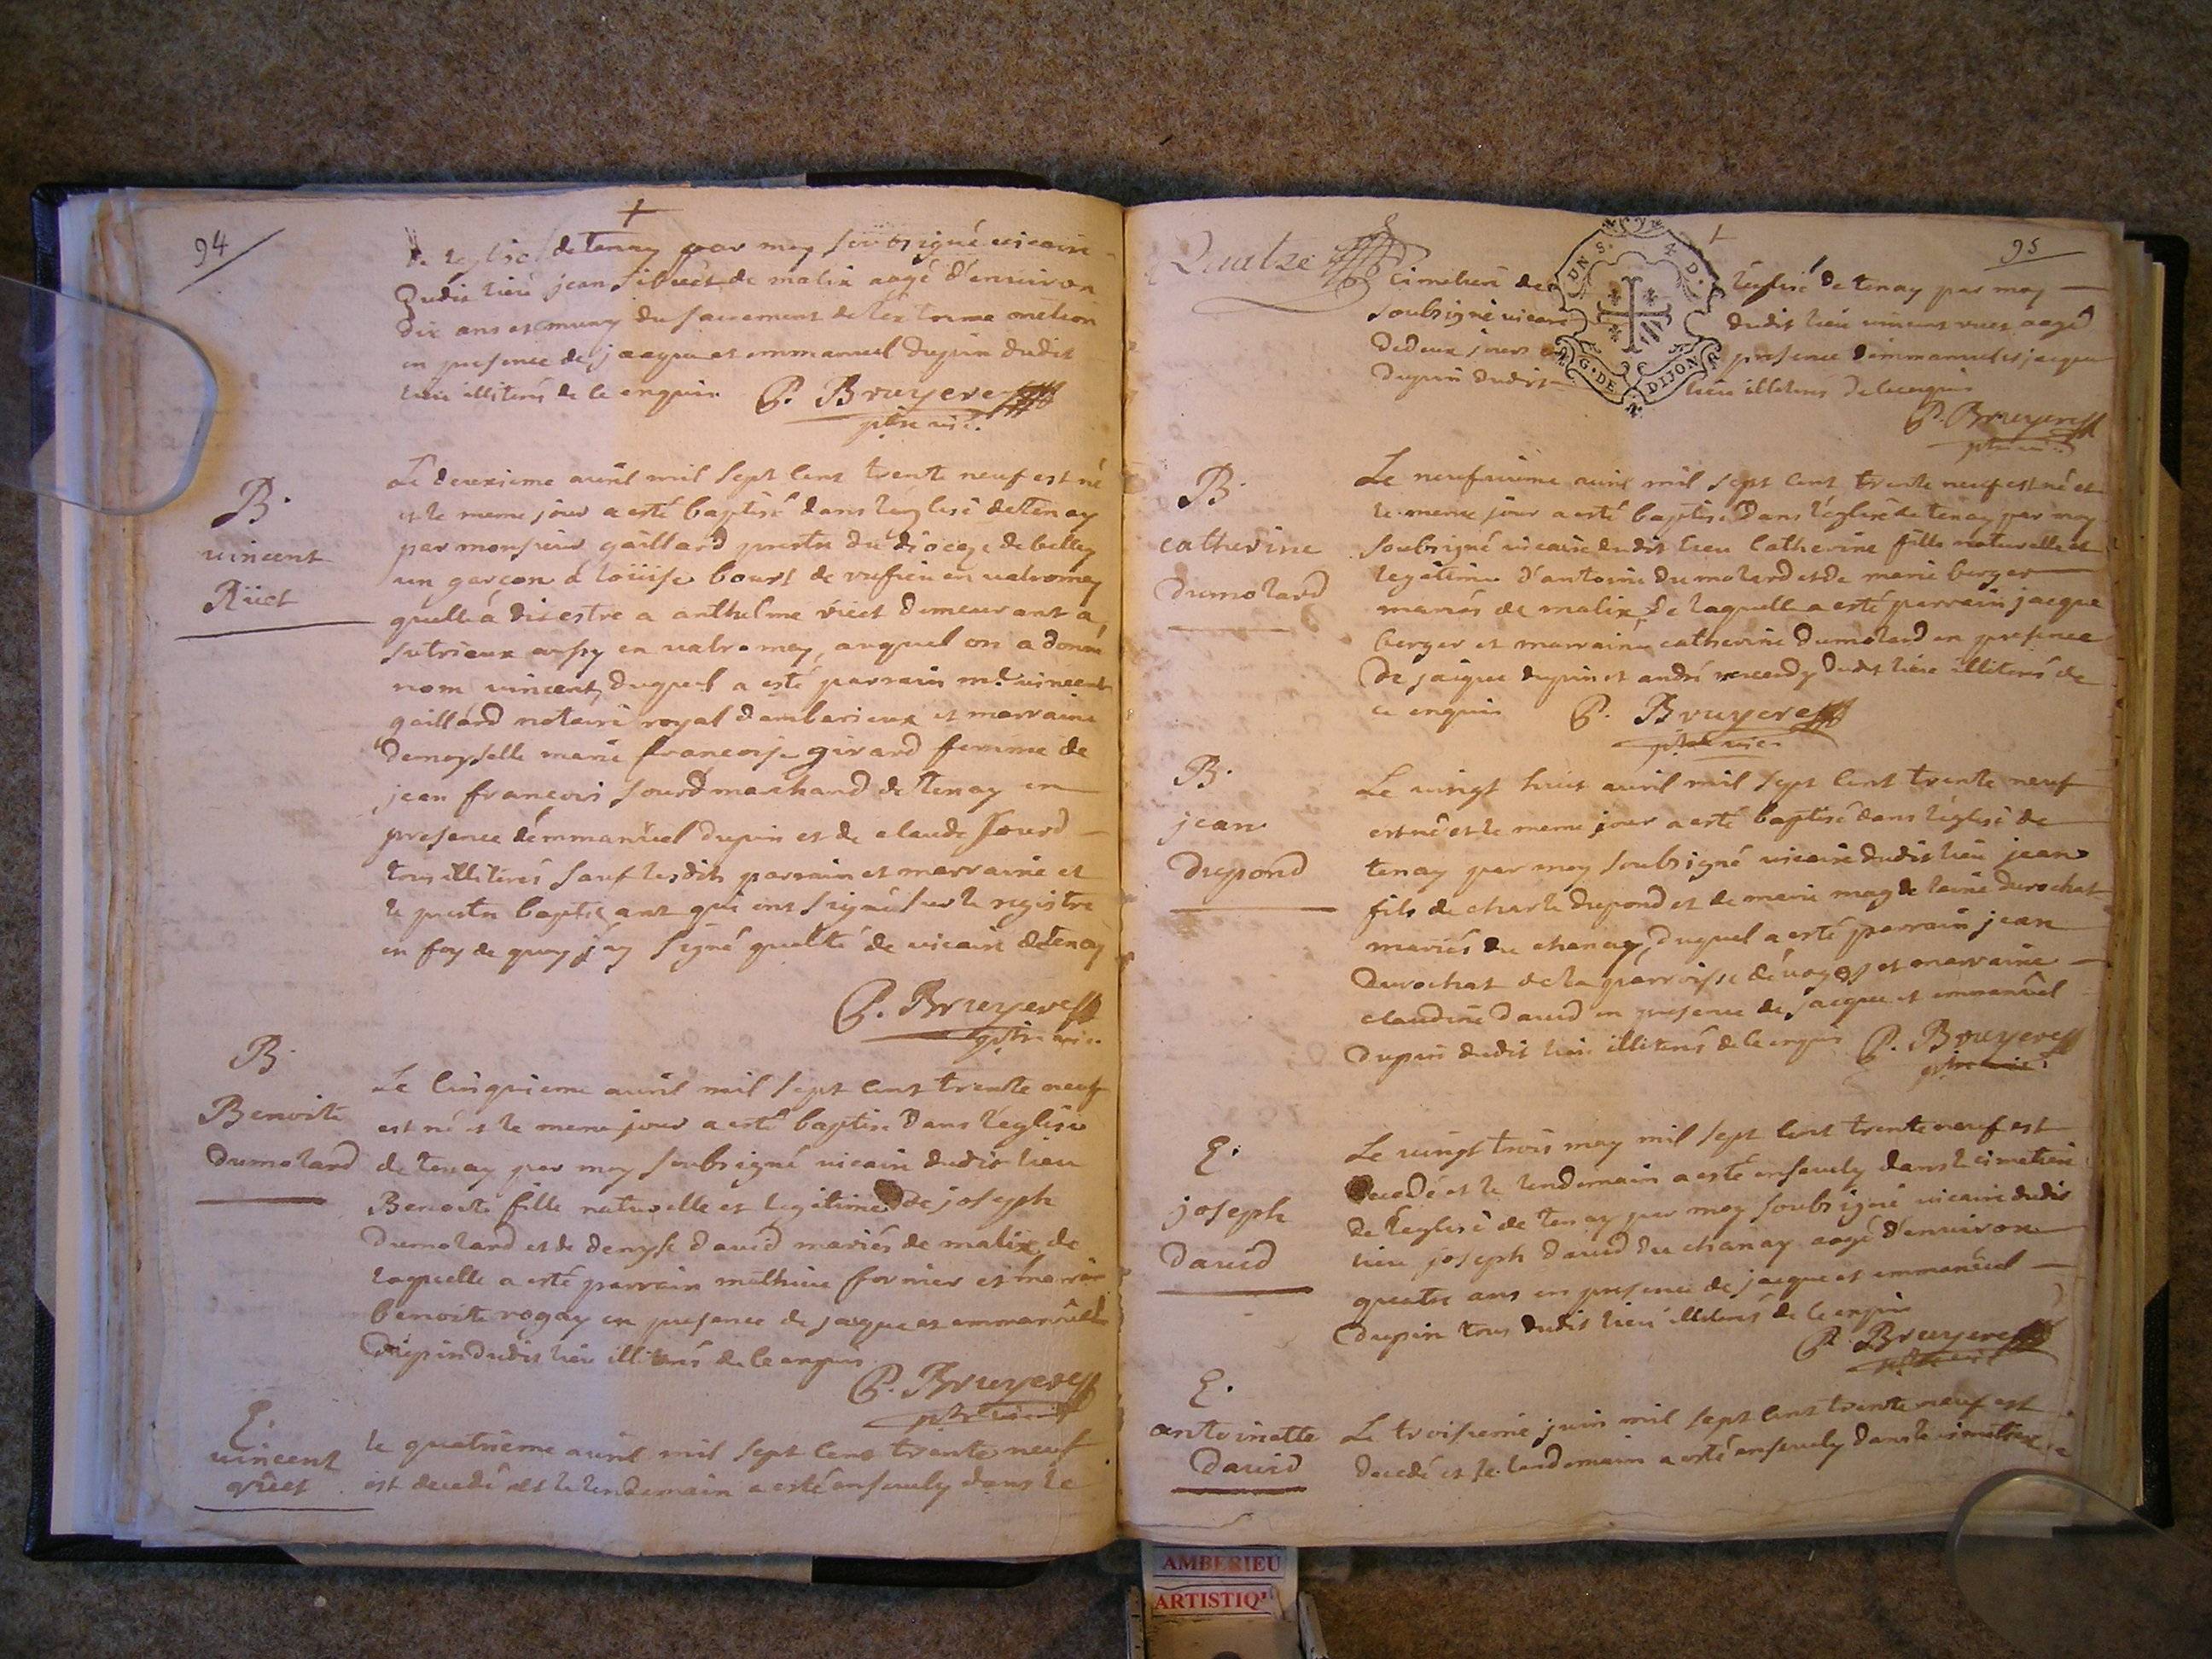 94
de l'eglise de tenay par moy soubsigné vicaire
dudit lieu jean de malix aagé d'environ
dix ans et muny du sacrement de l'extreme onction
en presence de jacque et emmanuel dupin dudit
lieu illiterés de ce enquis P. Bruyere
ptre vic.
B.
vincent
Rüet
Le deuxieme avril mil sept cent trente neuf est né
et le meme jour a esté baptisé dans l'église de tenay
par monsieur gaillard prestre du diocese de belley
un garçon á loüise bourt de rufieu en valromey
quelle á dit estre a anthelme rüet demeurant a
sutrieux aussy en valromey, auquel on a donné
nom vincent, duquel a esté parrain me vincent
gaillard notaire royal d'amberieux et marraine
demoyselle marie francoise girard femme de
jean francois sourd marchand de tenay en
presence d'emmanüel dupin et de claude sourd
tous illiterés sauf lesdits parrain et marraine et
le prestre baptisant qui ont signé sur le registre
en foy de quoy j'ay signé qualité de vicaire de tenay
P. Bruyere
ptre vic.
B.
Benoite
dumolard
Le cinquieme avril mil sept cent trente neuf
est né et le meme jour a esté baptisé dans l'église
de tenay par moy soubsigné vicaire dudit lieu
Benoite fille naturelle et legitime de joseph
dumolard et de denyse david mariés de malix de
laquelle a esté parrain mathieu fornier et marraine
benoite rogay en presence de jacque et emmanüel
dupin dudit lieu illiterés de ce enquis
P. Bruyere
ptre vic.
E.
vincent
rüet
le quatrieme avril mil sept cent trente neuf
est decedé et le lendemain a esté ensevely dans le
Quatre
95
Cimetiere de l'église de tenay par moy
soubsigné vicaire dudit lieu vincent ruet aagé
de deux jours en presence d'emmanuel et jacque
dupin dudit lieu illiterés de ce enquis
UN S. 4 D.
G. DE DIJON
P. Bruyere
ptre vic.
B.
catherine
dumolard
Le neufvieme avril mil sept cent trente neuf est né et
le meme jour a esté baptisé dans l'église de tenay par moy
soubsigné vicaire dudit lieu Catherine fille naturelle et
legitime d'antoine dumolard et de marie berger
mariés de malix, de laquelle a esté parrain jacque
berger et marraine catherine dumolard en presence
de jacque dupin et andré dudit lieu illiterés de
ce enquis P. Bruyere
ptre vic.
B.
jean
Dupond
Le vingt huit avril mil sept cent trente neuf
est né et le meme jour a esté baptisé dans l'église de
tenay par moy soubsigné vicaire dudit lieu jean
fils de charle dupond et de marie magdelaine durochat
mariés du chanay, duquel a esté parrain jean
durochat de la parroisse d'évoges et marraine
claudine david en presence de jacque et emmanüel
dupin dudit lieu illiterés de ce enquis P. Bruyere
ptre vic.
E.
joseph
david
Le vingt trois may mil sept cent trente neuf est
decedé et le lendemain a esté ensevely dans le cimetiere
de l'eglise de tenay par moy soubsigné vicaire dudit
lieu joseph david du chanay aagé d'environ
quatre ans en presence de jacque et emmanüel
dupin tous dudit lieu illiterés de ce enquis
P. Bruyere
ptre vic.
E.
antoinette
david
Le troisieme juin mil sept cent trente neuf est
decedé et le lendemain a esté ensevely dans le cimetiere
AMBERIEU
ARTISTIQ'